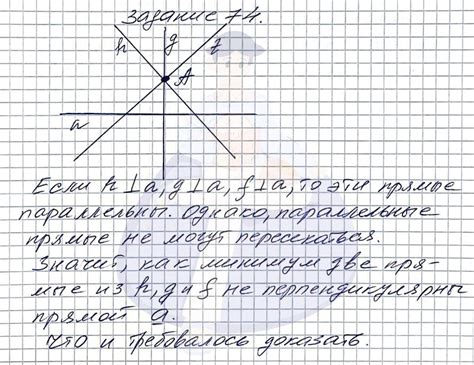 Задание 74.
h g f
A
a
Если h⊥a, g⊥a, f⊥a, то эти прямые
параллельны. Однако, параллельные
прямые не могут пересекаться.
Значит, как минимум две пря-
мые из h, g и f не перпендикулярны
прямой a.
Что и требовалось доказать.